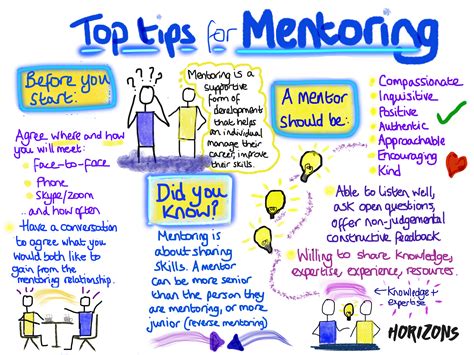 Top tips for Mentoring
Before you
start:
Agree where and how
you will meet:
Face-to-face
Phone
Skype/zoom
...and how often
Have a conversation
to agree what you
would both like to
gain from the
mentoring relationship.
? ? ? ?
Mentoring is a
supportive
form of
development
that helps
an individual
manage their
career, improve
their skills.
Did you
know?
Mentoring is
about sharing
skills. A mentor
can be more senior
than the person they
are mentoring, or more
junior (reverse mentoring)
A mentor
should be:
Compassionate
Inquisitive
Positive
Authentic
Approachable
Encouraging
Kind
Able to listen well,
ask open questions,
offer non-judgemental
constructive feedback
Willing to share knowledge,
expertise, experience, resources.
Knowledge +
expertise
HORIZONS